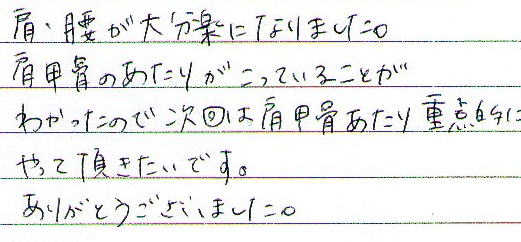 肩・腰が大分楽になりました。
肩甲骨のあたりがこっていることが
わかったので次回は肩甲骨あたり重点的に
やって頂きたいです。
ありがとうございました。